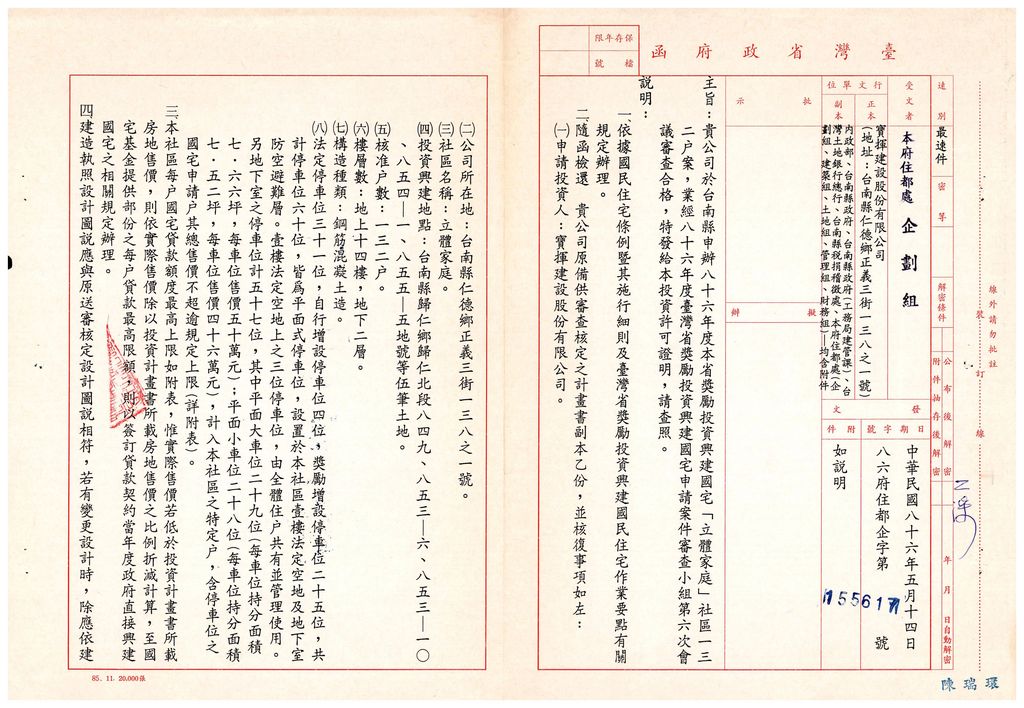 臺灣省政府函
保存年限
檔號
速別
最速件
密等
解密條件
公布後解密
附件抽存後解密
年月日自動解密
受文者
本府住都處企劃組
行文單位
正本
寶揮建設股份有限公司
(地址:台南縣仁德鄉正義三街一三八之一號)
副本
內政部、台南縣政府、台南縣政府(工務局建管課)、台
灣土地銀行總行、台南縣稅捐稽徵處、本府住都處(企
劃組、建築組、土地組、管理組、財務組)─均含附件
發文
日期
中華民國八十六年五月十四日
字號
八六府住都企字第155617號
附件
如說明
批示
擬辦
主旨:貴公司於台南縣申辦八十六年度本省獎勵投資興建國宅「立體家庭」社區一三
二户案,業經八十六年度臺灣省獎勵投資興建國宅申請案件審查小組第六次會
議審查合格,特發給本投資許可證明,請查照。
說明:
一、依據國民住宅條例暨其施行細則及臺灣省獎勵投資興建國民住宅作業要點有關
規定辦理。
二、隨函檢還 貴公司原備供審查核定之計畫書副本乙份,並核復事項如左:
㈠申請投資人:寶揮建設股份有限公司。
線外請勿批註
裝訂線
陳瑞環
㈡公司所在地:台南縣仁德鄉正義三街一三八之一號。
㈢社區名稱:立體家庭。
㈣投資興建地點:台南縣歸仁鄉歸仁北段八四九、八五三—六、八五三—一〇
、八五四—一、八五五—五地號等伍筆土地。
㈤核准户數:一三二户。
㈥樓層數:地上十四樓,地下二層。
㈦構造種類:鋼筋混凝土造。
㈧法定停車位三十一位,自行增設停車位四位,獎勵增設停車位二十五位,共
計停車位六十位,皆爲平面式停車位,設置於本社區壹樓法定空地及地下室
防空避難層。壹樓法定空地上之三位停車位,由全體住户共有並管理使用。
另地下室之停車位計五十七位,其中平面大車位二十九位(每車位持分面積
七.六六坪,每車位售價五十萬元);平面小車位二十八位(每車位持分面積
七.五二坪,每車位售價四十六萬元),計入本社區之特定户,含停車位之
國宅申請户其總售價不超逾規定上限(詳附表)。
三、本社區每户國宅貸款額度最高上限如附表,惟實際售價若低於投資計畫書所載
房地售價,則依實際售價除以投資計畫書所載房地售價之比例折減計算,至國
宅基金提供部份之每户貸款最高限額,則以簽訂貸款契約當年度政府直接興建
國宅之相關規定辦理。
四、建造執照設計圖説應與原送審核定設計圖説相符,若有變更設計時,除應依建
85.11.20,000張